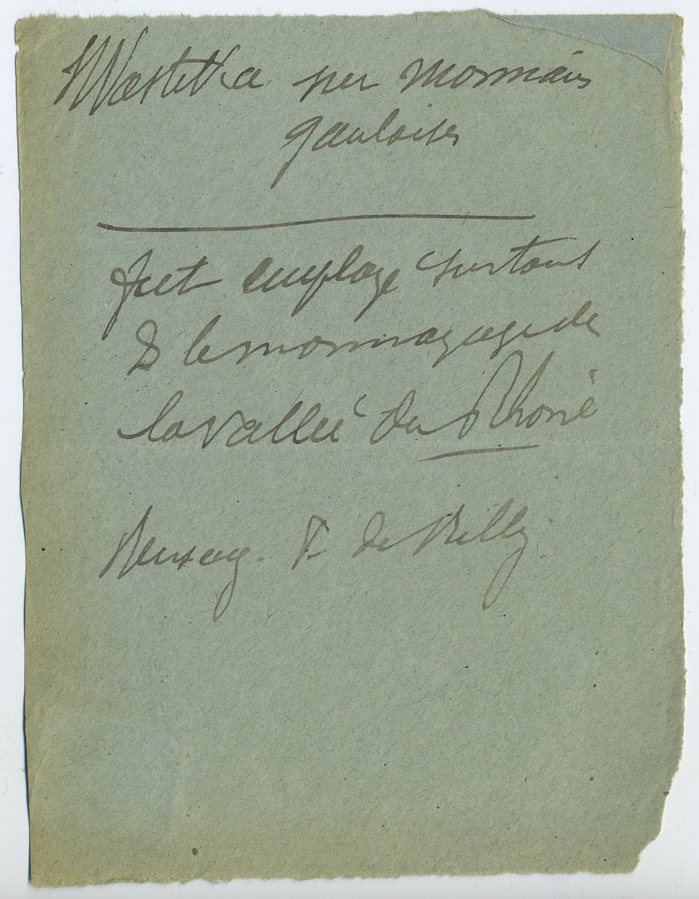 Wastika sur monnaies
gauloises
fut employé surtout
ds le monnayage de
la vallée du Rhône
T. de Rilly